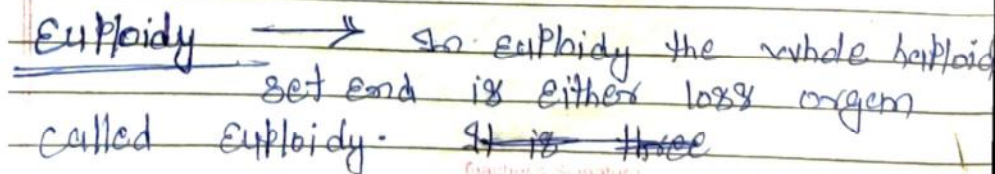 Euploidy → In euploidy the whole haploid
set end is either loss orgem
called Euploidy. It is three